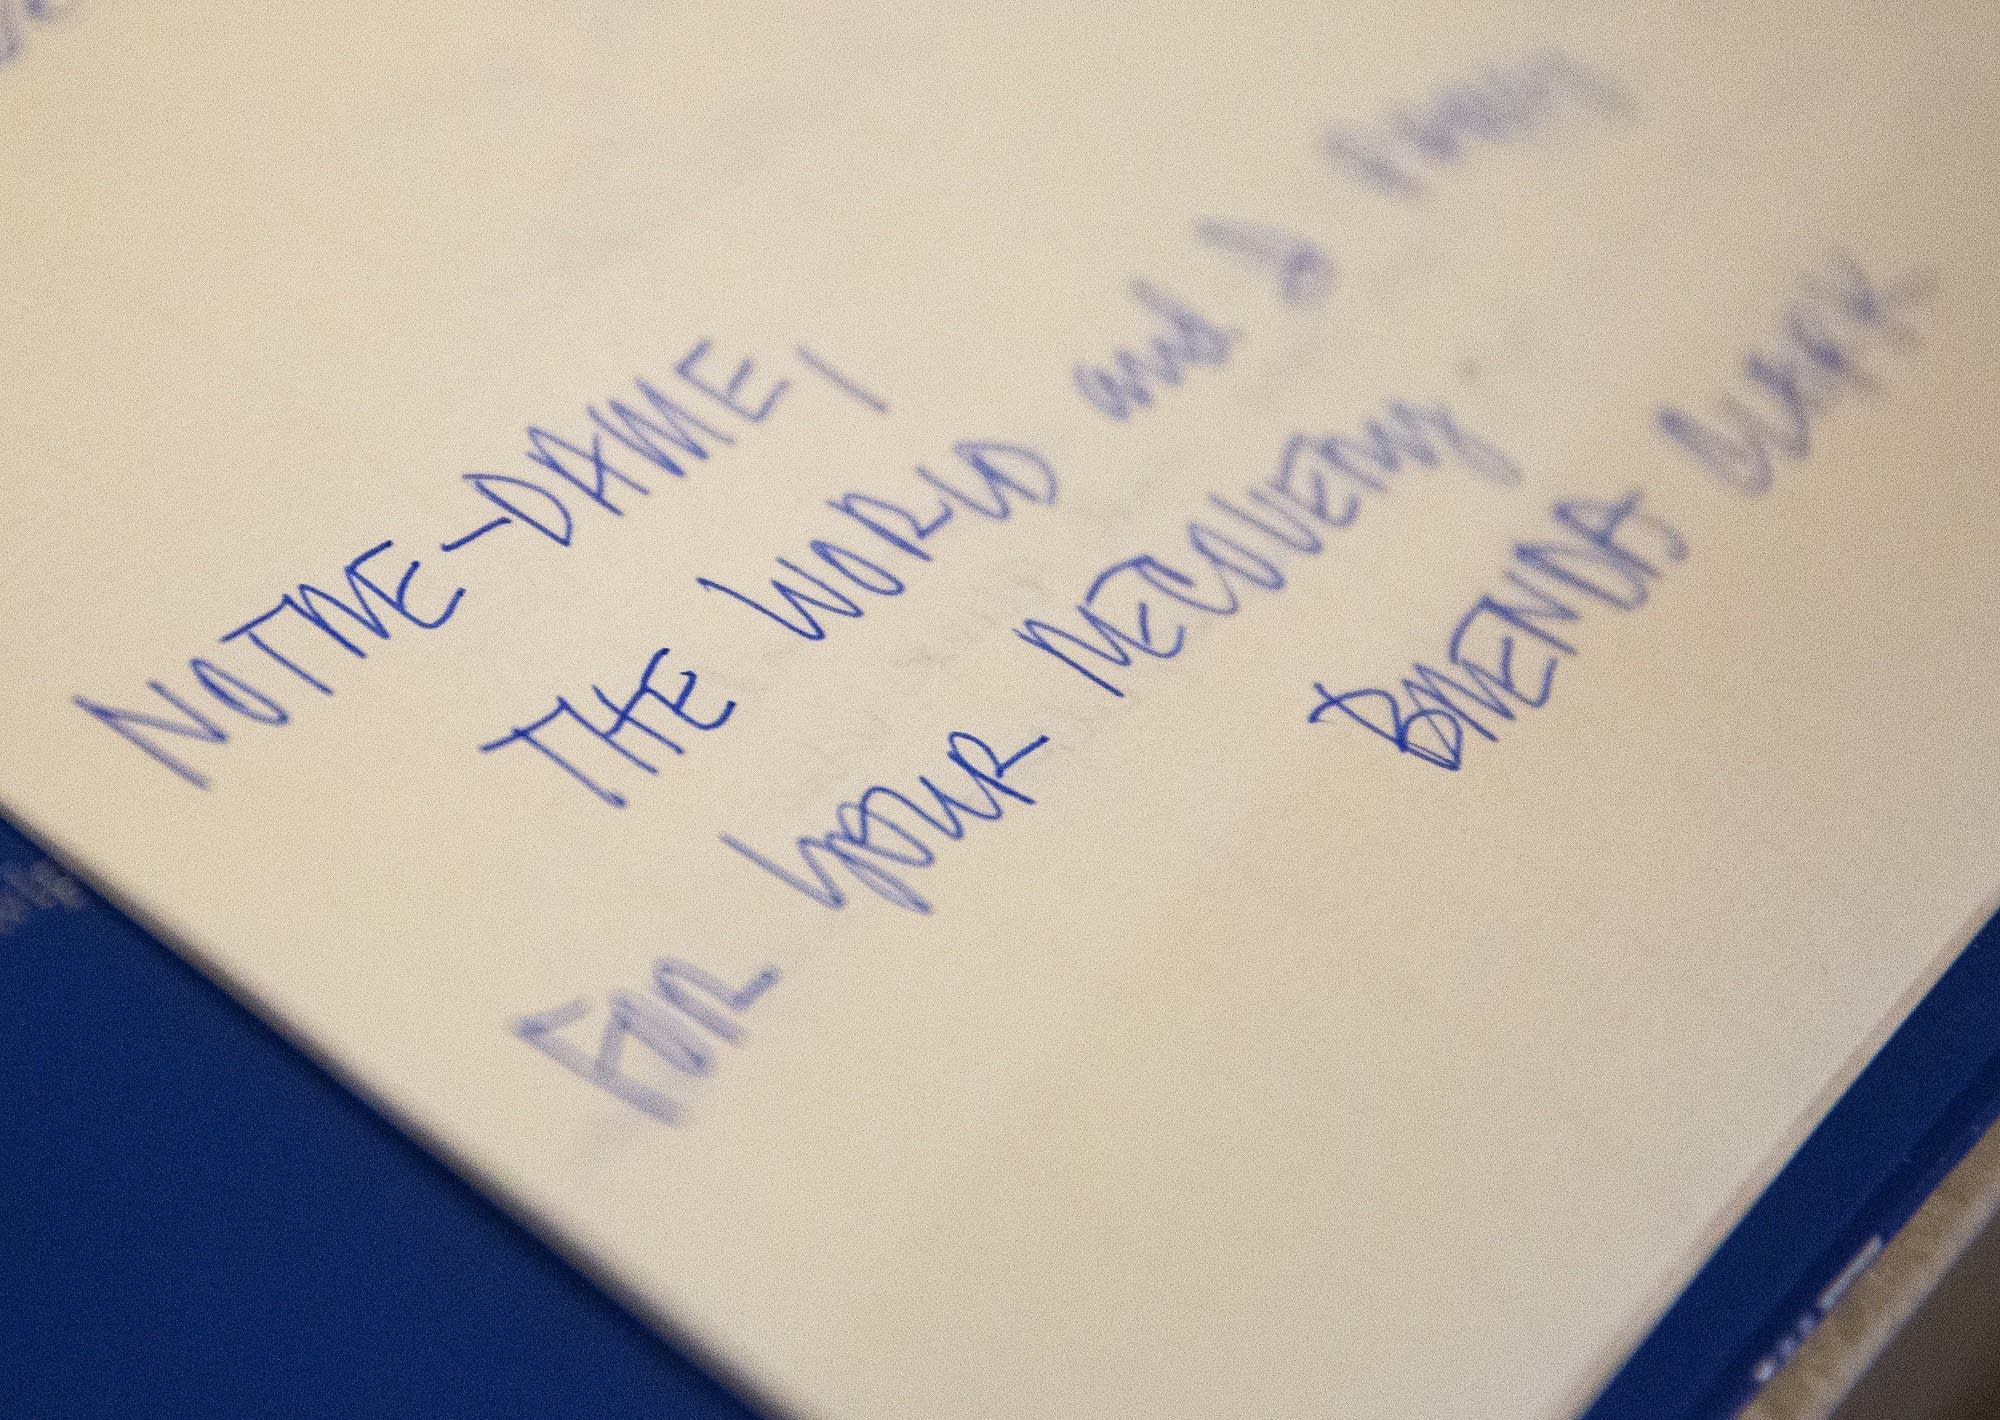 NOTRE-DAME,
THE WORLD and I pray
FOR YOUR RECOVERY
BRENDA